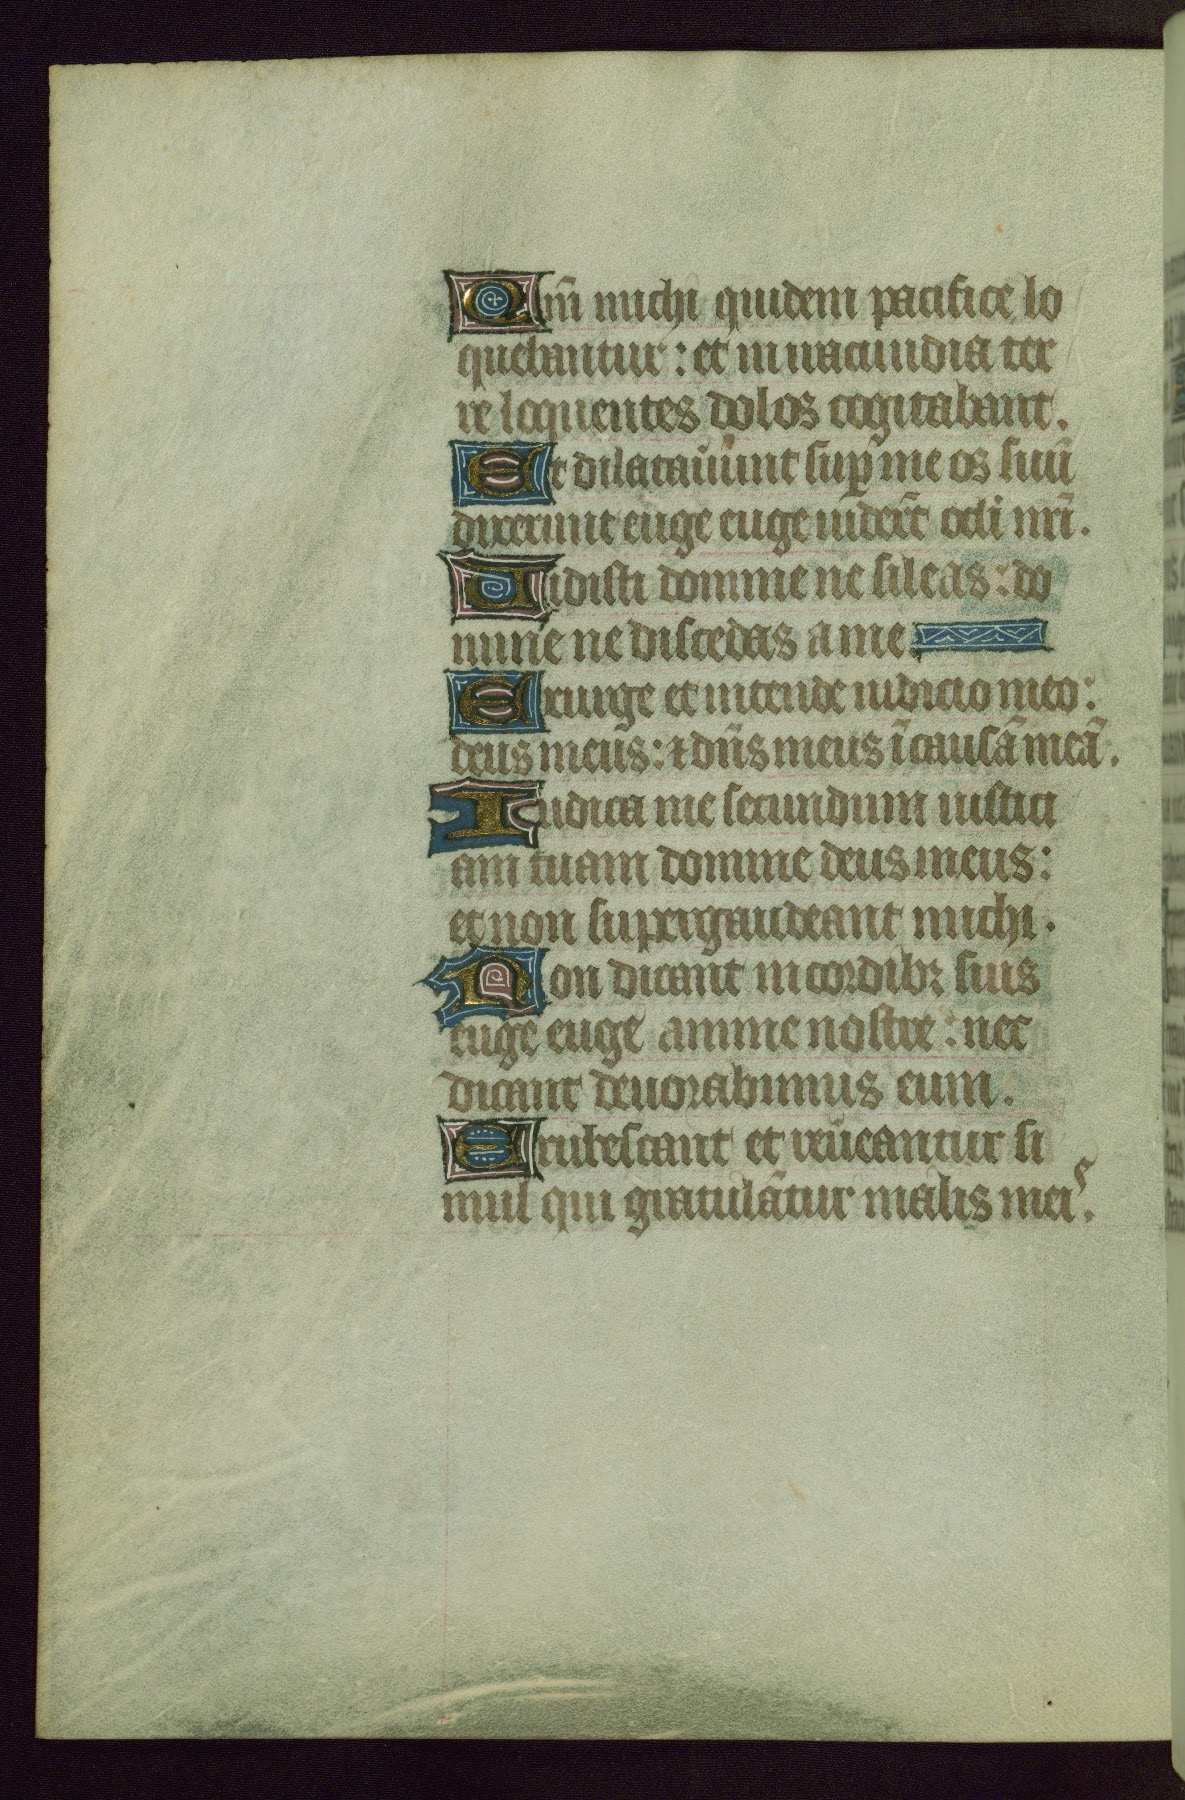 Qm̄ michi quidem pacifice lo
quebantur: et in iracundia ter
re loquentes dolos cogitabant.
Et dilatauūnt sup̄ me os suū
dixerunt euge euge uider̄t ocl̄i nr̄i.
Uidisti domine ne sileas: do
mine ne discedas a me.
Exurge et intende iudicio meo:
deus meus: ⁊ dn̄s meus ī causā meā.
Iudica me secundum iustici
am tuam domine deus meus:
et non supergaudeant michi.
Non dicant in cordibꝫ suis
euge euge anime nostre: nec
dicant deuorabimus eum.
Erubescant et reūeantur si
mul qui gratulātur malis meis.